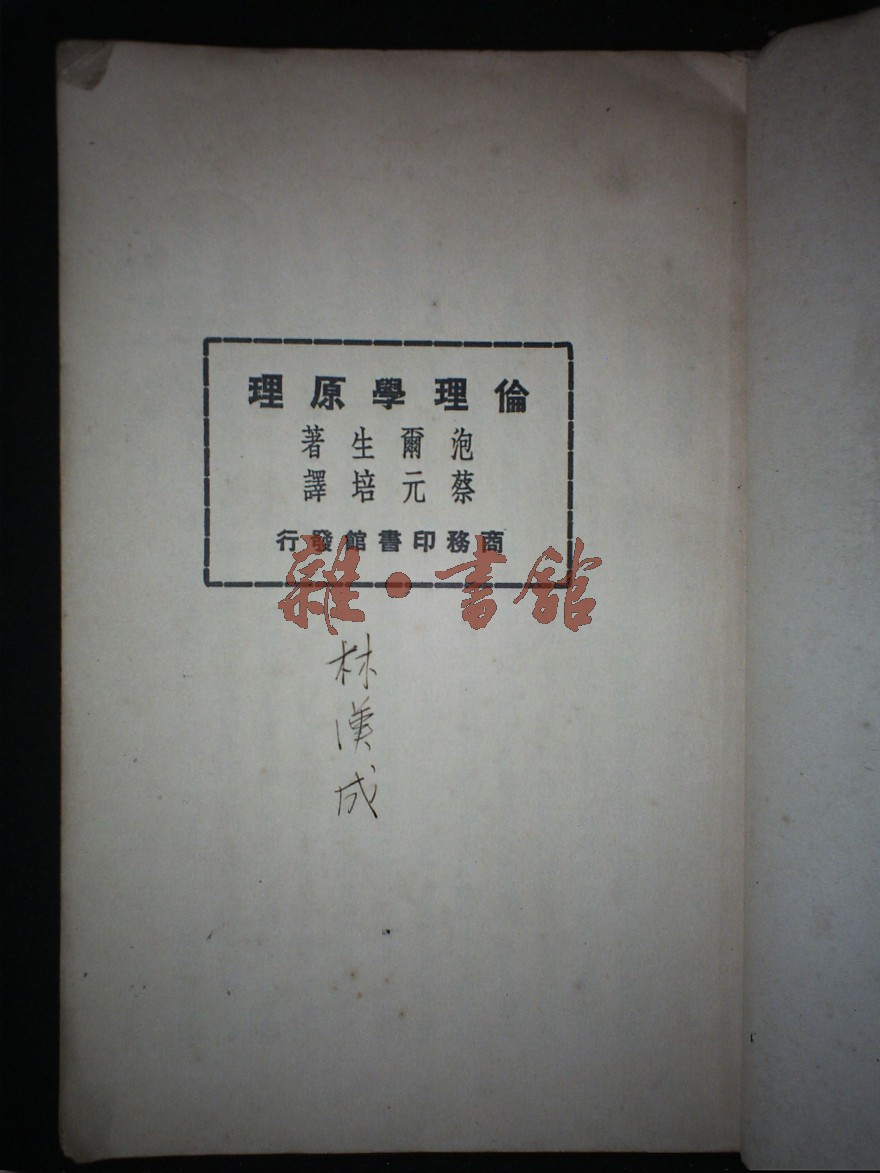 倫理學原理
泡爾生著
蔡元培譯
商務印書館發行
雜·書館
林漢成